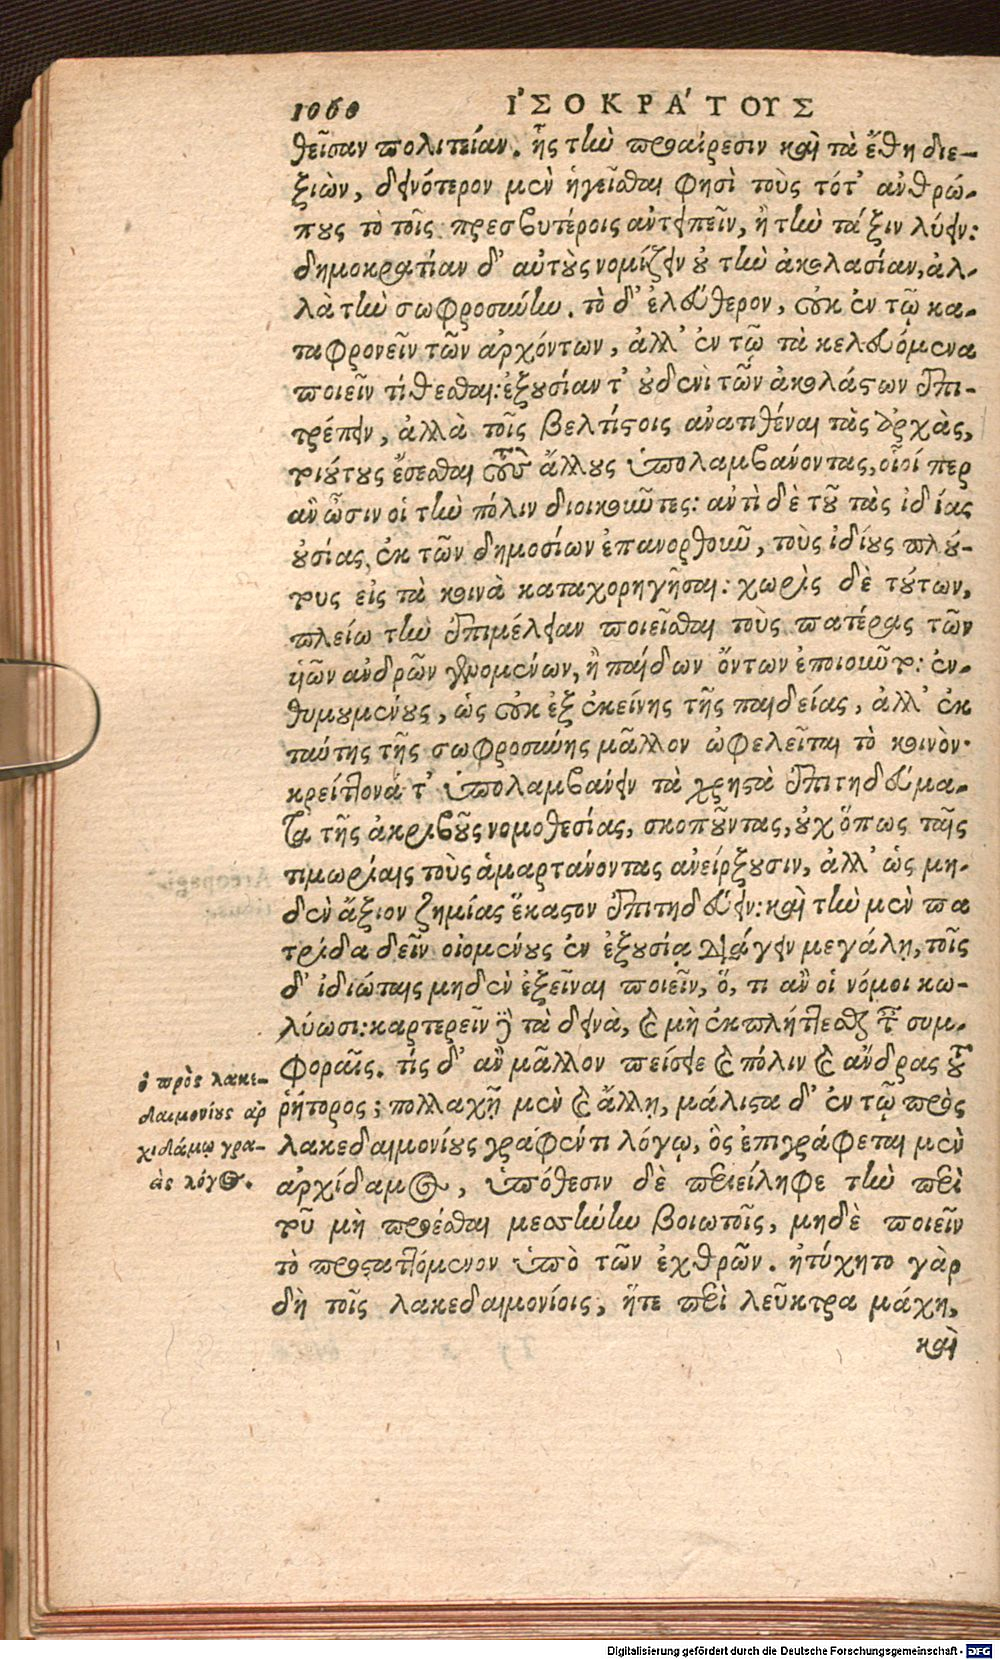 1060 ἸΣΟΚΡΆΤΟΥΣ
θεῖσαν πολιτείαν. ἧς τὴν προαίρεσιν καὶ τὰ ἔθη διε-
ξιὼν, δεινότερον μὲν ἡγεῖσθαι φησὶ τοὺς τότ' ἀνθρώ-
πους τὸ τοῖς πρεσβυτέροις ἀντειπεῖν, ἢ τὴν τάξιν λύειν:
δημοκρατίαν δ' αὐτοὺς νομίζειν οὐ τὴν ἀκολασίαν, ἀλ-
λὰ τὴν σωφροσύνην. τὸ δ' ἐλεύθερον, οὐκ ἐν τῷ κα-
ταφρονεῖν τῶν ἀρχόντων, ἀλλ' ἐν τῷ τὰ κελευόμενα
ποιεῖν τίθεσθαι: ἐξουσίαν τ' οὐδενὶ τῶν ἀκολάστων ἐπι-
τρέπειν, ἀλλὰ τοῖς βελτίστοις ἀνατιθέναι τὰς ἀρχὰς,
τοιούτους ἔσεσθαι τοὺς ἄλλους ὑπολαμβάνοντας, οἷοί περ
ἂν ὦσιν οἱ τὴν πόλιν διοικοῦντες: ἀντὶ δὲ τοῦ τὰς ἰδίας
οὐσίας ἐκ τῶν δημοσίων ἐπανορθοῦν, τοὺς ἰδίους πλού-
τους εἰς τὰ κοινὰ καταχορηγῆσαι: χωρὶς δὲ τούτων,
πλείω τὴν ἐπιμέλειαν ποιεῖσθαι τοὺς πατέρας τῶν
υἱῶν ἀνδρῶν γενομένων, ἢ παίδων ὄντων ἐποιοῦντο: ἐν-
θυμουμένους, ὡς οὐκ ἐξ ἐκείνης τῆς παιδείας, ἀλλ' ἐκ
ταύτης τῆς σωφροσύνης μᾶλλον ὠφελεῖται τὸ κοινὸν.
κρείττονά τ' ὑπολαμβάνειν τὰ χρηστὰ ἐπιτηδεύμα-
τα τῆς ἀκριβοῦς νομοθεσίας, σκοποῦντας, οὐχ ὅπως ταῖς
τιμωρίαις τοὺς ἁμαρτάνοντας ἀνείρξουσιν, ἀλλ' ὡς μη-
δὲν ἄξιον ζημίας ἕκαστον ἐπιτηδεύειν: καὶ τὴν μὲν πα
τρίδα δεῖν οἰομένους ἐν ἐξουσίᾳ διάγειν μεγάλῃ, τοῖς
δ' ἰδιώταις μηδὲν ἐξεῖναι ποιεῖν, ὅ, τι ἂν οἱ νόμοι κω-
λύωσι: καρτερεῖν δὲ τὰ δεινὰ, καὶ μὴ ἐκπλήττεσθαι ταῖς συμ-
φοραῖς. τίς δ' ἂν μᾶλλον πείσειε καὶ πόλιν καὶ ἄνδρας τοῦ
ῥήτορος; πολλαχῇ μὲν καὶ ἄλλῃ, μάλιστα δ' ἐν τῷ πρὸς
λακεδαιμονίους γραφέντι λόγῳ, ὃς ἐπιγράφεται μὲν
ἀρχίδαμος, ὑπόθεσιν δὲ περιείληφε τὴν περὶ
τοῦ μὴ προέσθαι μεσσήνην βοιωτοῖς, μηδὲ ποιεῖν
τὸ προσταττόμενον ὑπὸ τῶν ἐχθρῶν. ἠτύχητο γὰρ
δὴ τοῖς λακεδαιμονίοις, ἥτε περὶ λεῦκτρα μάχη,
καὶ
ὁ πρὸς λακε-
δαιμονίους ἀρ
χιδάμῳ γρα-
φεὶς λόγος.
Digitalisierung gefördert durch die Deutsche Forschungsgemeinschaft - DFG